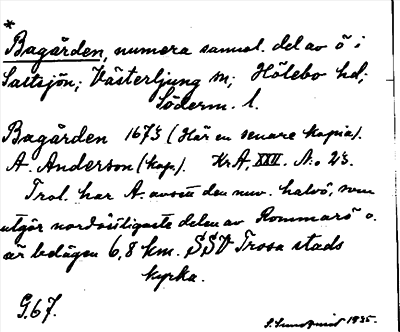 *
Bagården, numera samml. del av ö i
Saltsjön; Västerljung sn; Hölebo hd;
Söderm. l.
Bagården 1673 (Här en senare kopia).
A. Anderson (kop.). Kr A, XXVI. No 23.
Trol. har A. avsett den nuv. halvö, som
utgör nordöstligaste delen av Kommarö o.
är belägen 6,8 km. SSV Trosa stads
kyrka.
G.67.
S. Lundquist 1935.